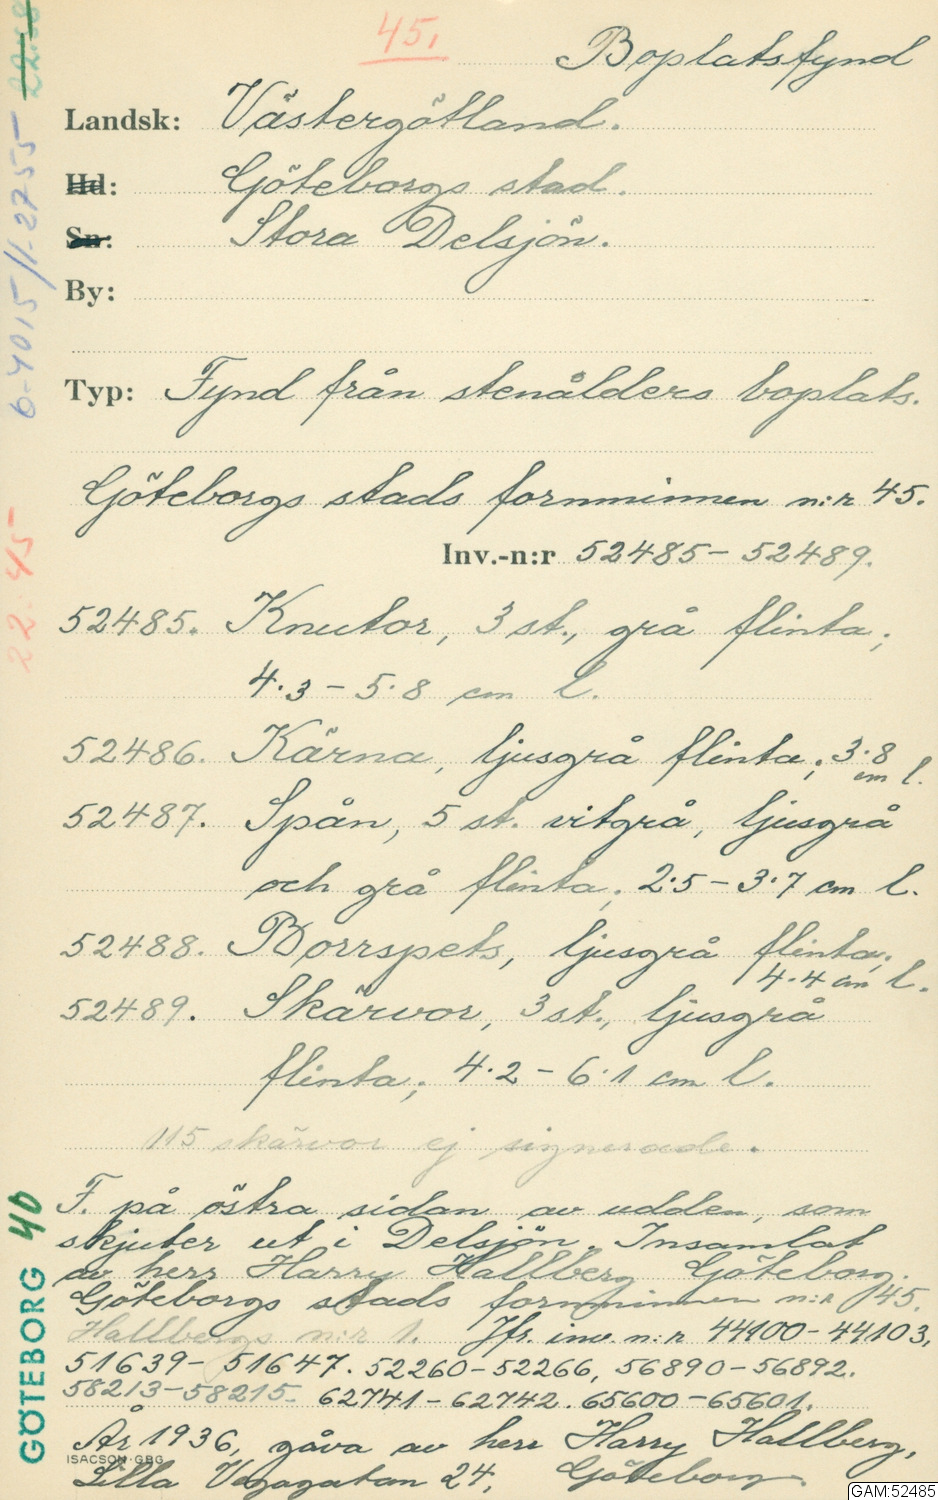 45.
Boplatsfynd
Landsk: Västergötland.
Hd: Göteborgs stad.
Sn: Stora Delsjön.
By:
Typ: Fynd från stenålders boplats.
Göteborgs stads fornminnen n:r 45.
Inv.-n:r 52485–52489.
52485. Knutor, 3 st., grå flinta;
4.3 – 5.8 cm l.
52486. Kärna, ljusgrå flinta; 3.8
cm l.
52487. Spån, 5 st. vitgrå, ljusgrå
och grå flinta; 2.5 – 3.7 cm l.
52488. Borrspets, ljusgrå flinta;
4.4 cm l.
52489. Skärvor, 3 st., ljusgrå
flinta; 4.2 – 6.1 cm l.
115 skärvor ej signerade.
F. på östra sidan av udden, som
skjuter ut i Delsjön. Insamlat
av herr Harry Hallberg Göteborg.
Göteborgs stads fornminnen n:r 45.
Hallbergs n:r 1. Jfr. inv. n:r 44100–44103,
51639–51647. 52260–52266, 56890–56892.
58213–58215. 62741–62742. 65600–65601.
År 1936, gåva av herr Harry Hallberg,
ISACSON·GBG
Lilla Vegagatan 24, Göteborg.
22:45
6-4015/1-2755
GÖTEBORG 40
GAM:52485